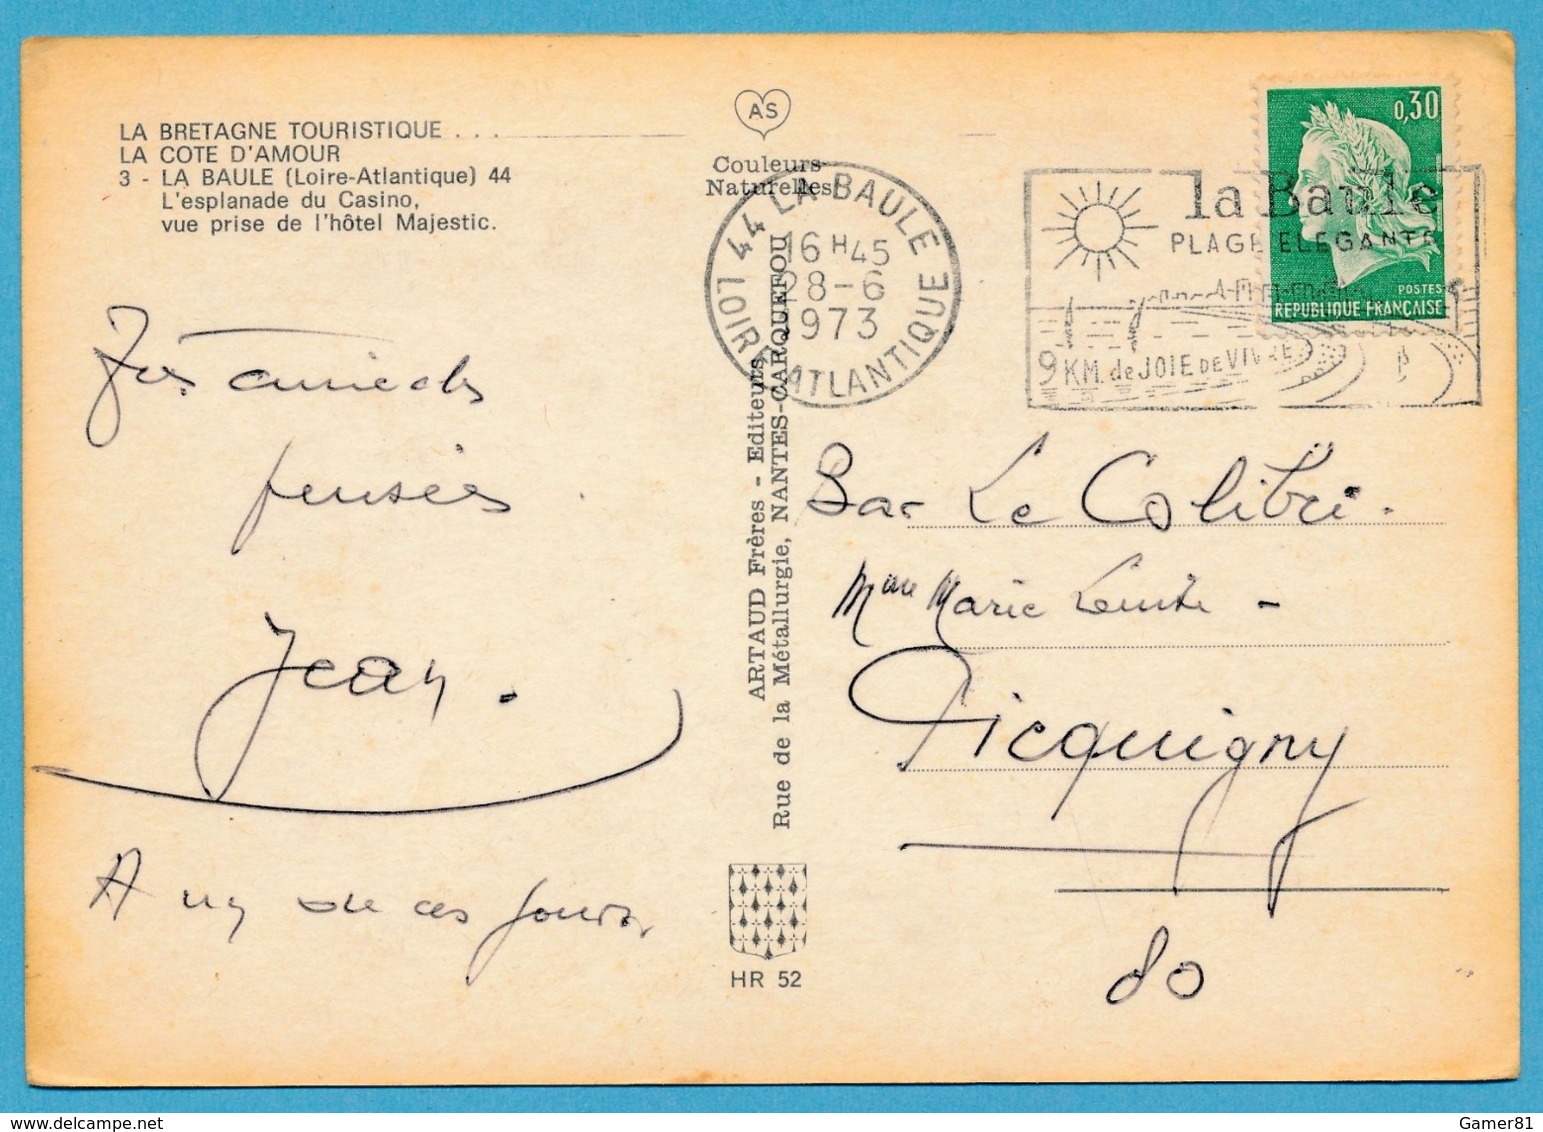 LA BRETAGNE TOURISTIQUE . . .
LA COTE D'AMOUR
3 - LA BAULE (Loire-Atlantique) 44
L'esplanade du Casino,
vue prise de l'hôtel Majestic.
AS
Couleurs
Naturelles
44 LA BAULE
16 H 45
28-6
1973
LOIRE ATLANTIQUE
la Baule
PLAGE ELEGANTE
9 KM. de JOIE DE VIVRE
0,30
POSTES
REPUBLIQUE FRANÇAISE
Très amicales
pensées
Jean.
A un de ces jours
ARTAUD Frères - Editeurs
Rue de la Métallurgie, NANTES-CARQUEFOU
HR 52
Bar Le Colibri.
Mme Marie
Picquigny
80
Gamer81